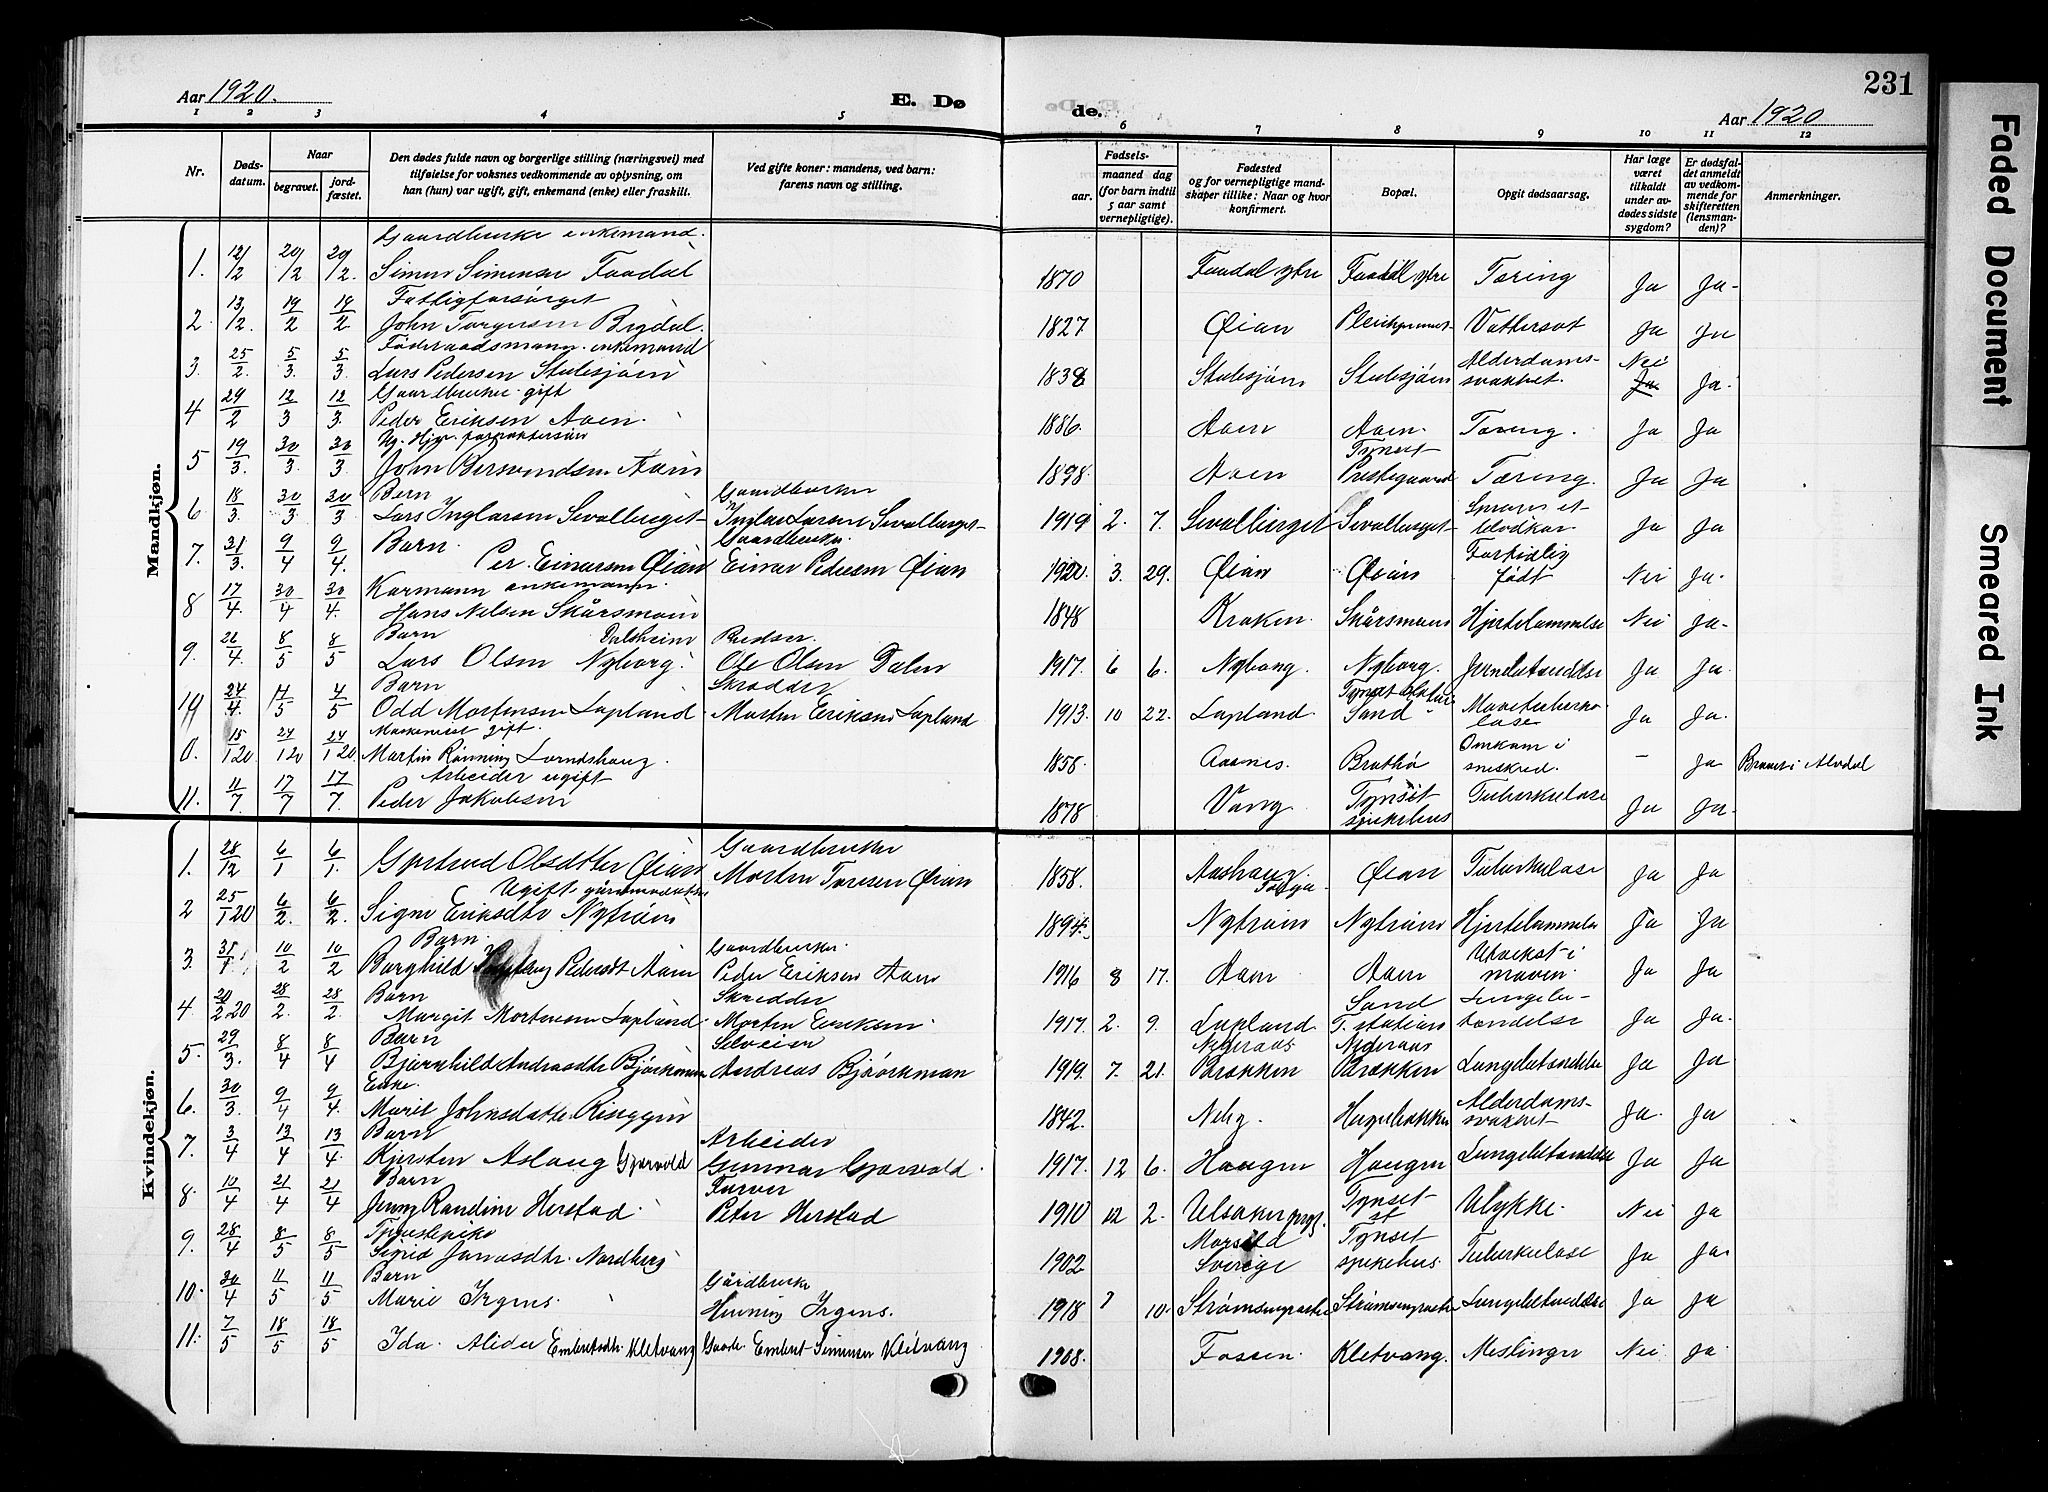 231
Aar 1920.
E. Dø
de.
Aar 1920
1 2 3 4 5 6 7 8 9 10 11 12
Nr.
Døds-
datum.
Naar
begravet.
jord-
fæstet.
Den dødes fulde navn og borgerlige stilling (næringsvei) med
tilføielse for voksnes vedkommende av oplysning, om
han (hun) var ugift, gift, enkemand (enke) eller fraskilt.
Ved gifte koner: mandens, ved barn:
farens navn og stilling.
Fødsels-
aar.
maaned dag
(for barn indtil
5 aar samt
vernepligtige).
Fødested
og for vernepligtige mand-
skaper tillike: Naar og hvor
konfirmert.
Bopæl.
Opgit dødsaarsag.
Har læge
været
tilkaldt
under av-
dødes sidste
sygdom?
Er dødsfal-
det anmeldt
av vedkom-
mende for
skifteretten
(lensman-
den)?
Anmerkninger.
Mandkjøn.
Gaardbruker enkemand.
1. 12/2 20/2 20/2 Simen Simensen Faadal 1870 Faadal ytre Faadal ytre Tæring Ja Ja
Fattigforsørget
2. 13/2 19/2 18/2 John Torgersen Brydal. 1827 Øian Vattersot Ja Ja
Føderaadsmann enkemand
3. 25/2 5/3 5/3 Lars Pedersen Stubsjøen 1838 Stubsjøen Stubsjøen Alderdoms-
svakhet. Nei Ja Ja
Gaardbruker gift
4 29/2 12/3 12/3 Peder Eriksen Aaen. 1886. Aaen Aaen. Tæring. Ja Ja
5 19/3 30/3 30/3 John Bersvendsen Aaen 1898. Aaen Tynset
Prestegaard Tæring. Ja Ja
Barn Gaardbruker
6 18/3 30/3 30/3 Lars Inglarsen 1919 2. 7. Ja Ja
Barn. Gaardbruker.
7. 31/3 9/4 9/4 Per Einarsen Øian Einar Pedersen Øian 1920. 3. 29. Øian Øian Fortidlig
født Nei Ja.
enkemann
8 17/4 30/4 30/4 Hans Nelsen Skårsmoen 1848 Kroken. Skårsmoen Hjertelammelse Nei Ja
Barn Dalsheim
9. 8/5 8/5 Lars Olsen Nyborg Ole Olsen Dalen 1917. 6 6. Nyborg. Nyborg. Ja Ja.
Barn Skrædder
24/4 4/5 Odd Mortensen Lapland. Morten Eriksen Lapland 1913. 10 22. Lapland. Tynset station
Sand Mavetuberku-
lose Ja Ja.
gift.
0. 15/1 20 24/1 20 24/1 20 Martin Rønning Lorndshaug. 1858. Aasnes. Brathø Omkom i
sneskred. – Ja Alvdal
Arbeider ugift
11. 11/7 17/7 17/7. Peder Jakobsen 1878 Vang Tynset
sykehus Tuberkulose Ja Ja
Kvindekjøn.
Gaardbruker
1. 28/12 6/1 6/1. Gjertrud Olsdtter Øian Morten Toresen Øian 1858. Aashaug.
Tolga. Øian Tuberkulose Ja Ja
Ugift
2 25/1 20 6/2. 6/2. Signe Eriksdtr Nytrøen 1894. Nytrøen Nytrøen Hjertelammelse Ja Ja
Barn. Gaardbruker.
3. 31/1 10/2 10/2 Borghild Pedersdt Aaen Peder Eriksen Aaen 1916 8 17. Aaen Aaen Utvekst i
maven. Ja Ja
Barn Skrædder
4. 20/2 20 28/2. 28/2. Margit Mortensen Lapland. Morten Eriksen. 1917. 2. 9. Lapland. Sand
T. station Lungebe-
tændelse Ja Ja.
Barn Selveier
5. 29/3. 8/4 8/4 Bjørnhild Andreasdtr Bjørkman Andreas Bjørkman 1919. 7. 21. Nyderaas
Brækken Nyderaas
Brækken Lungebetændelse Ja Ja
Enke.
6. 30/3. 9/4 9/4. Marit Johnsdatter 1842. Neby. Hagebakken Alderdoms-
svakhet Ja. Ja
Barn Arbeider
7. 3/4 13/4 13/4 Kjersten Aslaug Gjervold Gunnar Gjervold. 1917. 12 6. Haugen Haugen Lungebetændelse Ja Ja
Barn
8. 10/4 21/4 21/4 Jenny Randine Herstad Peter Herstad 1910 12 2. Tynset
st Ulykke. Nei Ja
Tjenestepike
9. 28/4 8/5 8/5 Sigrid Jonasdtr. Nordberg 1902
Sverige Tynset
sykehus. Tuberkulose Ja Ja.
Barn Gårdbruker
10. 30/4 11/5 11/5 Marie Irgens. Henning Irgens. 1918 ? 10. Lungebetændelse Ja Ja
11. 7/5 18/5 18/5 Ida Alida Embretsdtr. Kletvang Gaardb. Embret Simensen Kletvang 1908. Fossen. Kletvang. Meslinger Nei Ja
Faded Document
Smeared Ink